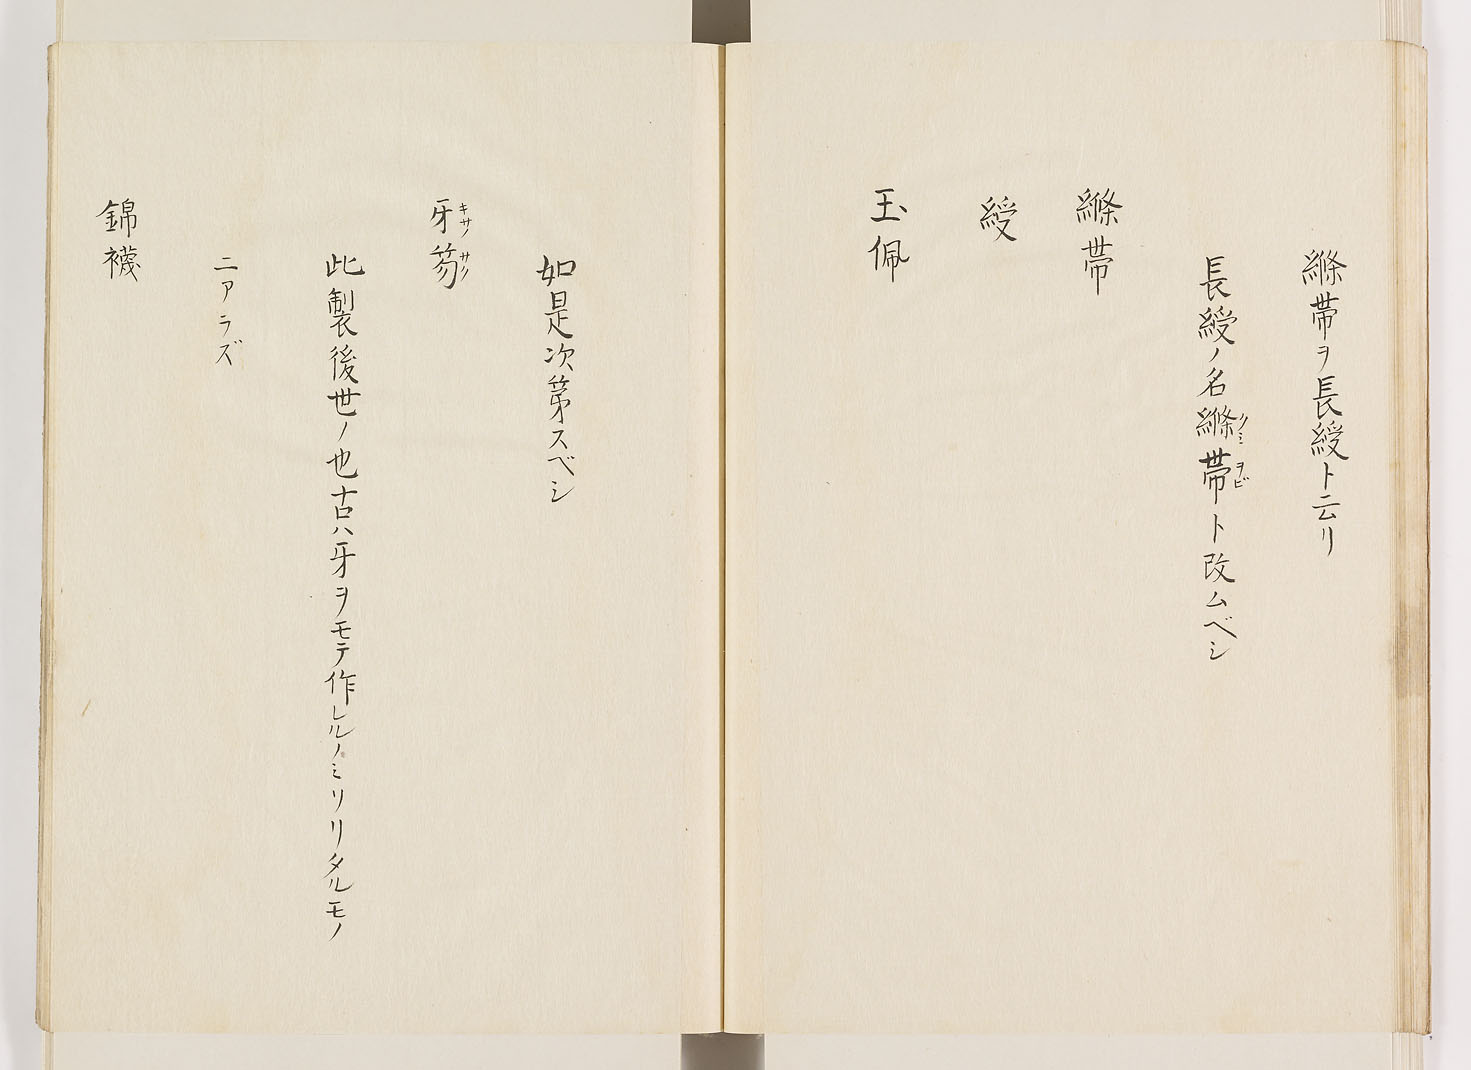 縧帯ヲ長綬ト云リ
長綬ノ名縧帯ト改ムベシ
クミ ヲビ
縧帯
綬
玉佩
如是次第スベシ
牙笏
キサノ サク
此製後世ノ也古ハ牙ヲモテ作レルノミソリタルモノ
ニアラズ
錦襪